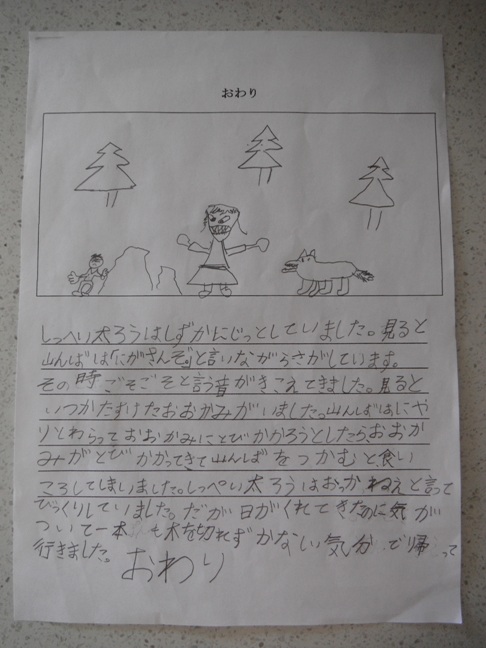 おわり
しっぺい太ろうはしずかにじっとしていました。見ると
山んばは「にがさんぞ」と言いながらさがしています。
その時ごそごそと言う音がきこえてきました。見ると
いつかたすけたおおかみがいました。山んばはにや
りとわらっておおかみにとびかかろうとしたらおおか
みがとびかかってきて山んばをつかむと食い
ころしてしまいました。しっぺい太ろうはおっかねえと言って
びっくりしていました。だが日がくれてきたのに気が
ついて一本も木を切れずかない気分で帰って
行きました。おわり